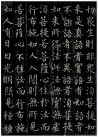 切眾生則非眾生須菩提如
來是真語者實語者如語
者不誑語者不異語者須菩
提如來所得法此法無實無
虛須菩提若菩薩心住於法而
行布施如人入闇則無所見
若菩薩心不住法而行布施
如人有目日光明照見種